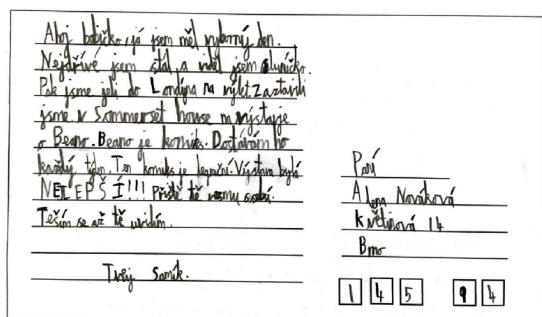 Ahoj babičko, já jsem měl výborný den.
Nejdříve jsem stál a viděl jsem sluníčko.
Pak jsme jeli do Londýna na výlet. Zastavili
jsme v Sommerset house na výstavje
o Beano. Beano je komiks. Dostávám ho
každý týden. Ten komiks je legační. Výstava byla
NEJLEPŠÍ!!! Příště tě vezmu sebou.
Teším se až tě uvidím.
Tvůj Samík.
Paní
Alena Nováková
Květinová 14
Brno
145 94